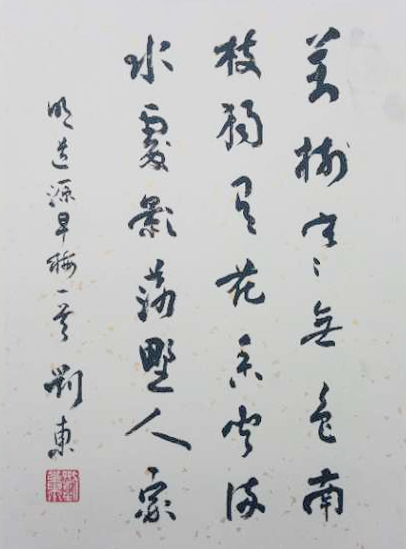 萬樹寒無色南
枝獨有花香聞流
水處影落野人家
明道源早梅一首 劉東